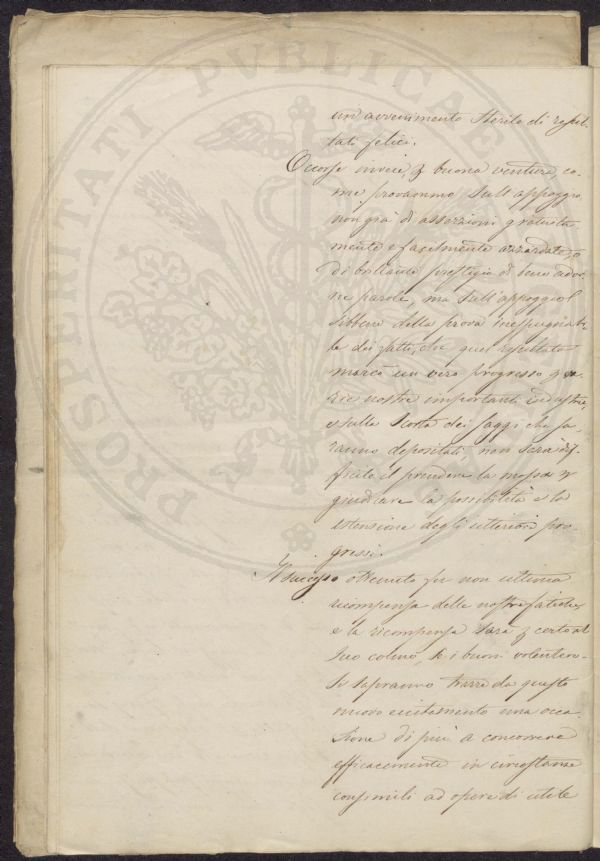 PROSPERITATI PVBLICAE
un avvenimento sterile di resul-
tati felici.
Occorse invece, p buona ventura, co-
me provammo sull' appoggio
non già di asserzioni gratuita-
mente e facilmente azzardate, o
di brillante prestigio di bene ador-
ne parole, ma sull' appoggio
sibbene della prova inespugnabi-
le dei fatti, che quel resultato
marcò un vero progresso p va-
rie nostre importanti industrie,
e sulla scorta dei saggi che sa-
ranno depositati, non sarà dif-
ficile il prendere la mossa p
giudicare la possibilità e la
estensione degli ulteriori pro-
gressi.
Il successo ottenuto fu non ultima
ricompensa delle nostre fatiche,
e la ricompensa sarà p certo al
suo colmo, se i buoni volentero-
si sapranno trarre da questo
nuovo eccitamento una occa-
sione di più a concorrere
efficacemente in circostanze
consimili ad opere di utile